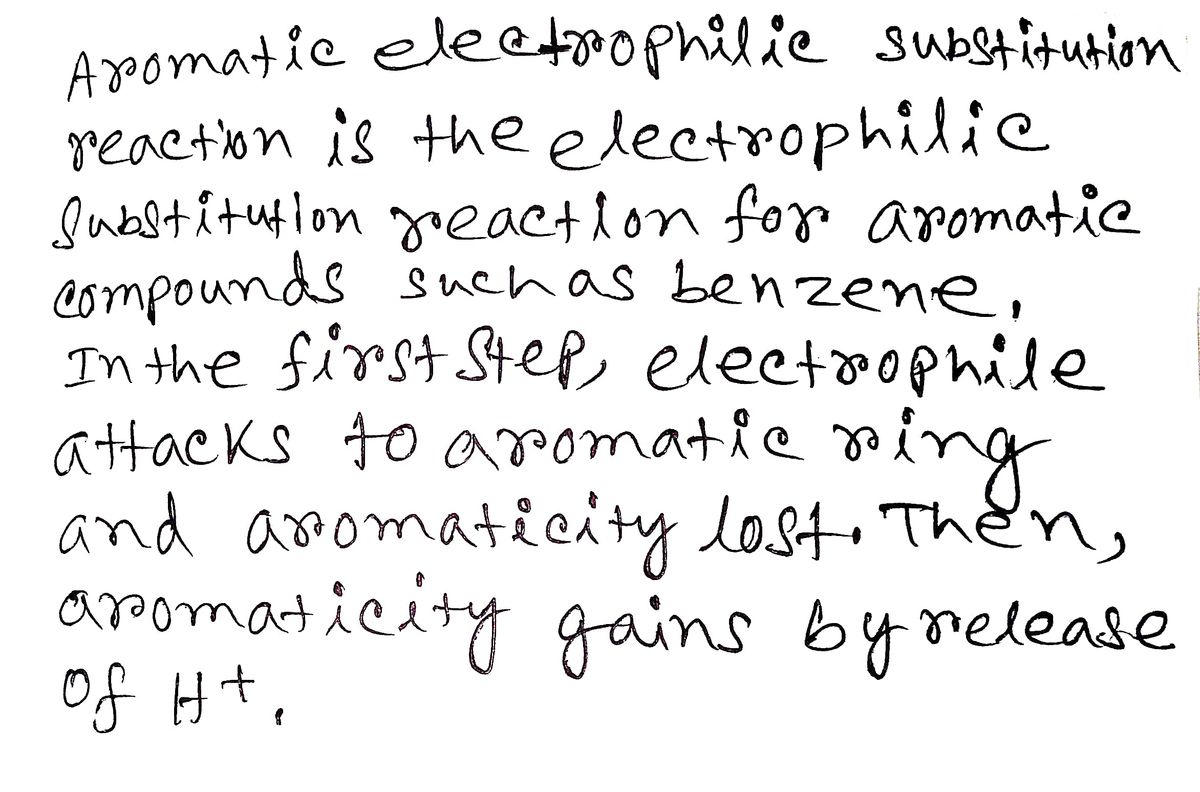 Aromatic electrophilic substitution
reaction is the electrophilic
substitution reaction for aromatic
compounds such as benzene.
In the first step, electrophile
attacks to aromatic ring
and aromaticity lost. Then,
aromaticity gains by release
of H+.